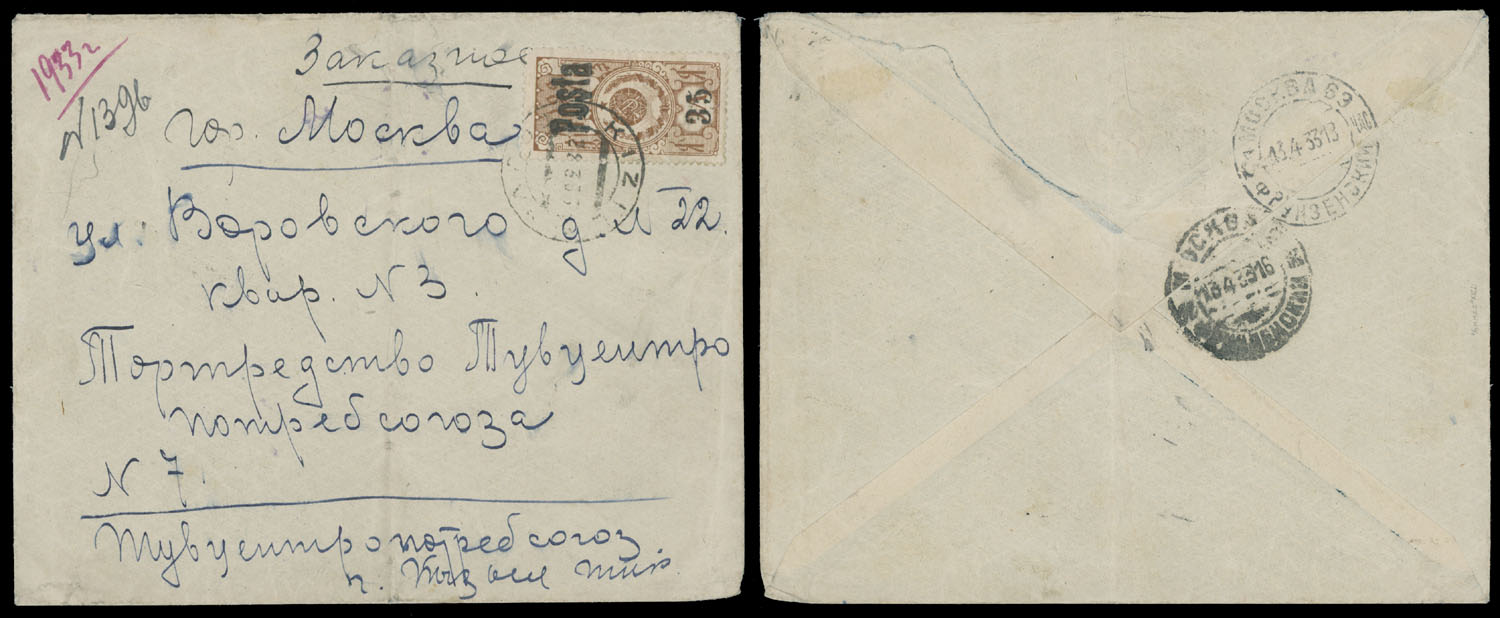 1933 г
N 1396
Заказное
Posta
35
гор. Москва
KIZIL
ул. Воровского д. N 22.
квар. N 3.
Торгпредство Тувцентро
потребсоюза
N 7.
Тувцентропотребсоюз.
г. Кызыл
МОСКВА 63
13.4.33 13
ФРУНЗЕНСКИЙ
МОСКВА
13.4.33 16